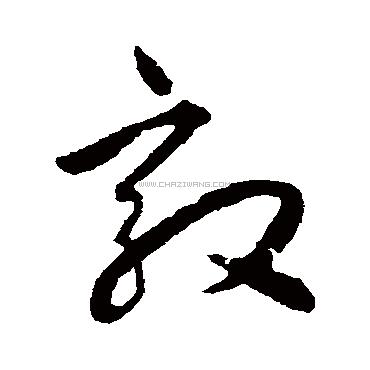 敦
WWW.CHAZIWANG.COM